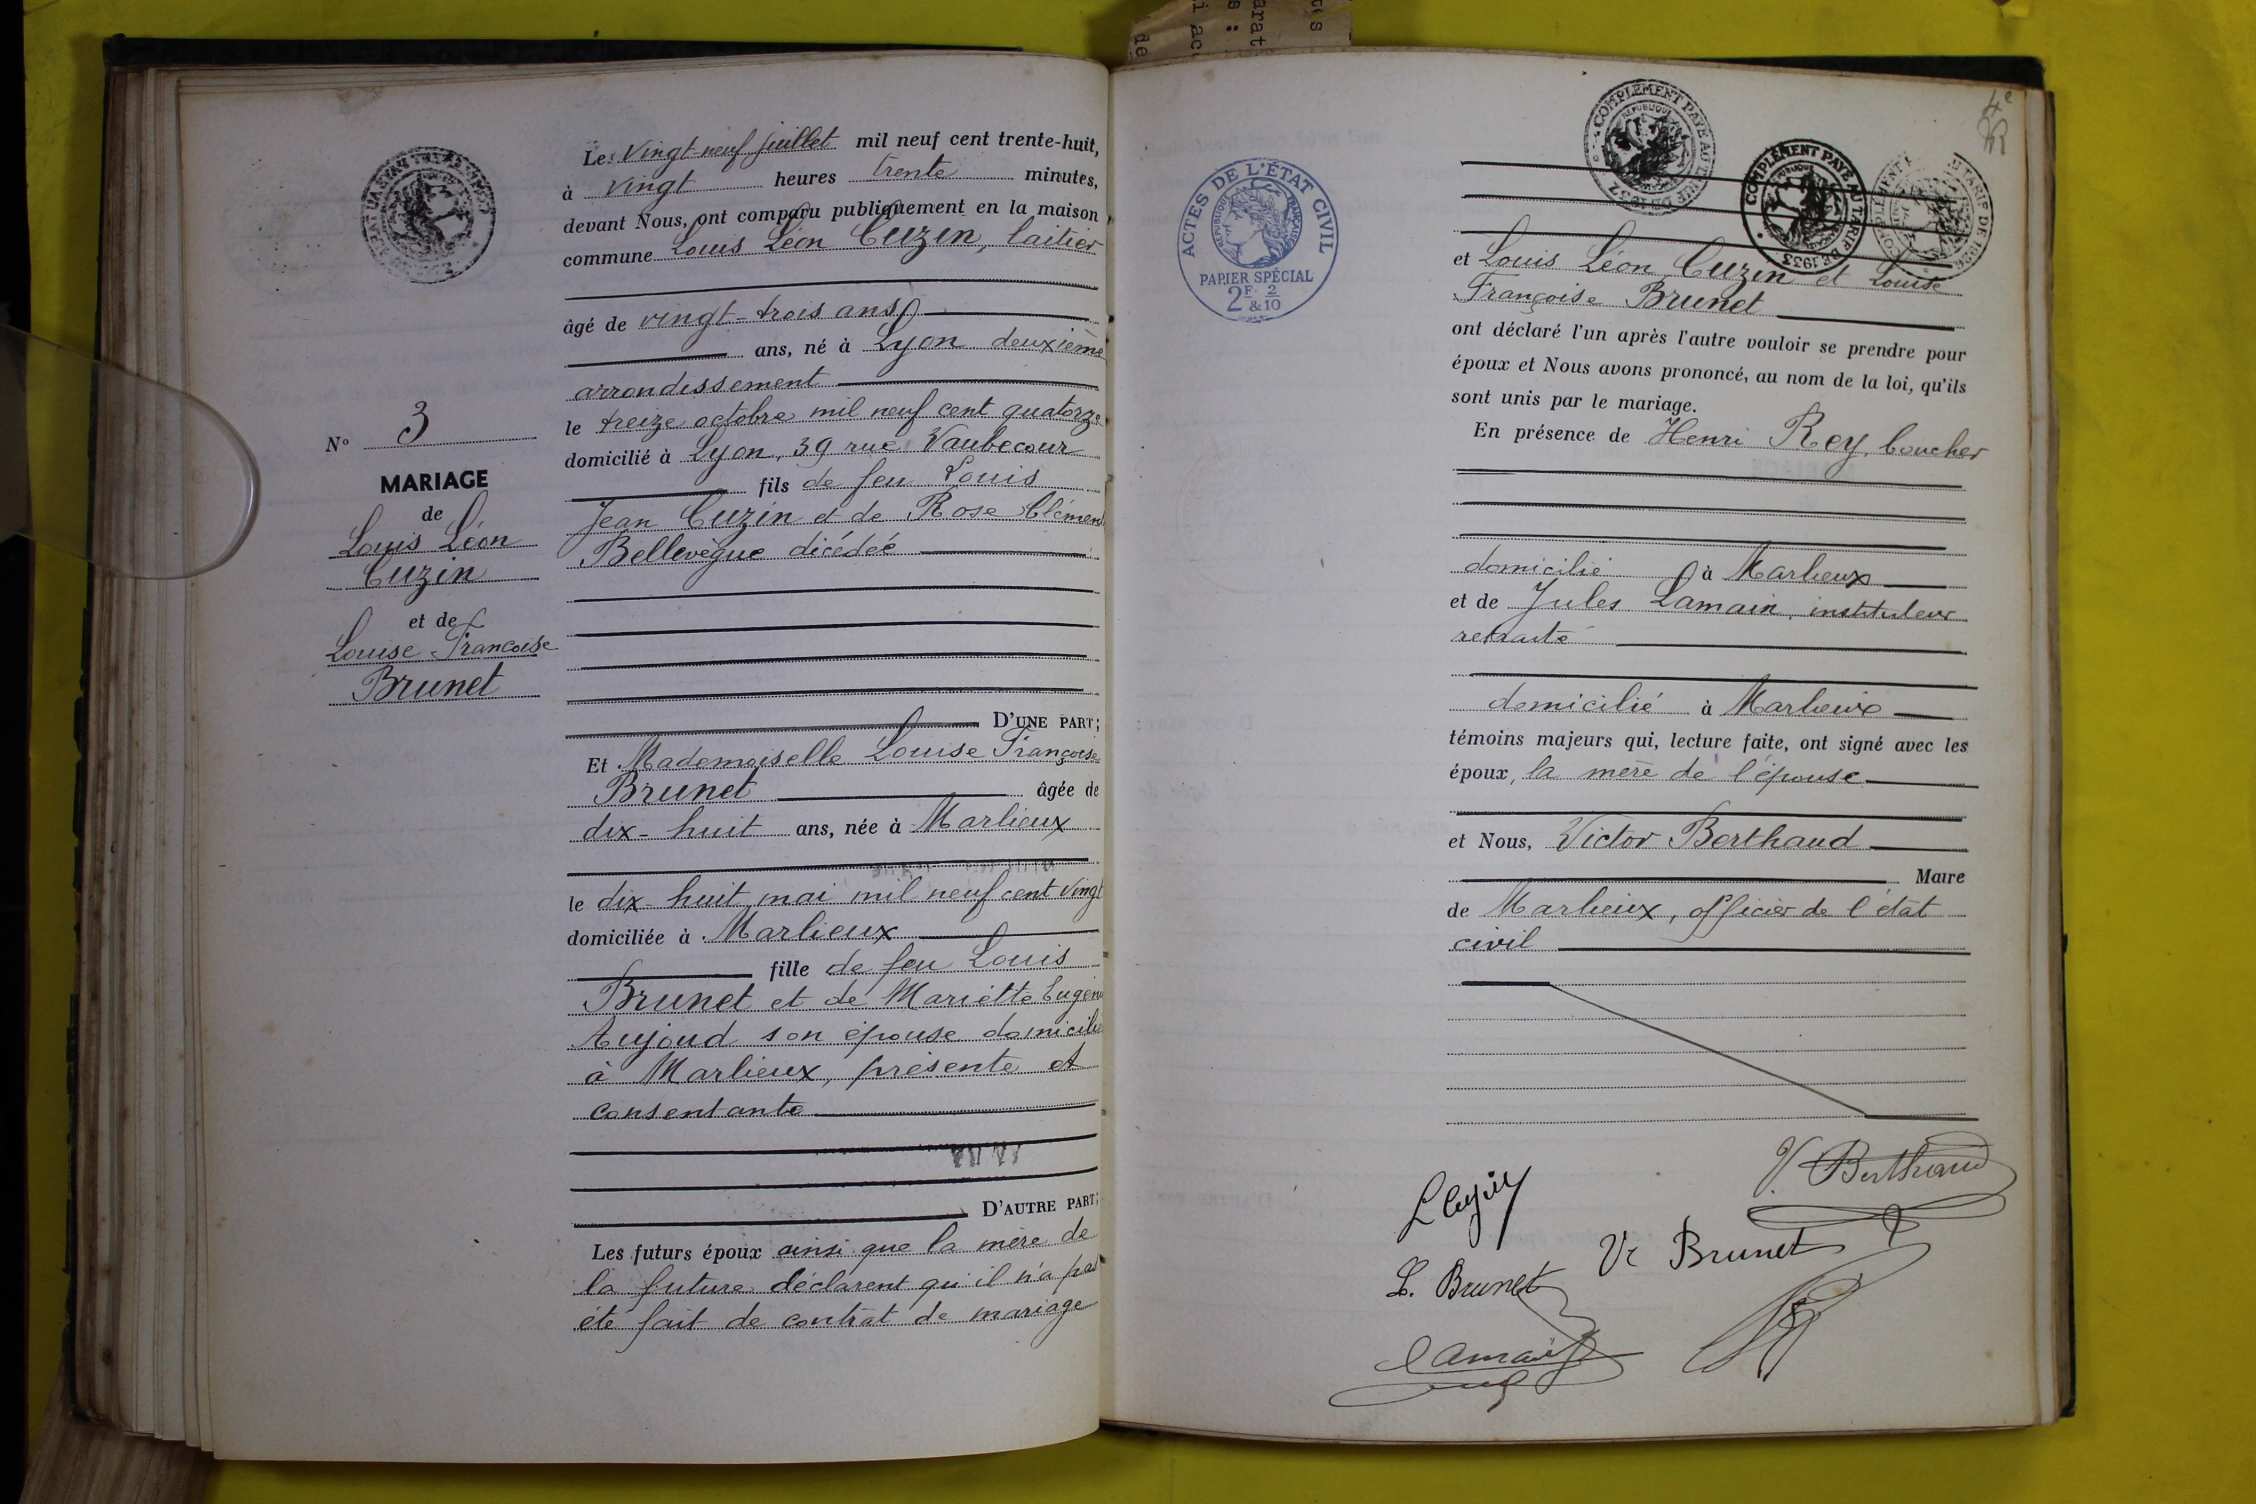 N° 3
MARIAGE
de
Louis Léon
Cuzin
et de
Louise Françoise
Brunet
Le vingt-neuf juillet mil neuf cent trente-huit,
à vingt heures trente minutes,
devant Nous, ont comparu publiquement en la maison
commune Louis Léon Cuzin, laitier
âgé de vingt-trois ans
ans, né à Lyon deuxième
arrondissement
le treize octobre mil neuf cent quatorze
domicilié à Lyon, 39 rue Vaubecour
fils de feu Louis
Jean Cuzin et de Rose
Bellevègue décédée
D'UNE PART;
Et Mademoiselle Louise Françoise
Brunet âgée de
dix-huit ans, née à Marlieux
le dix-huit mai mil neuf cent vingt
domiciliée à Marlieux
fille de feu Louis
Brunet et de Mariette
Aujoud son épouse
à Marlieux, présente et
consentante
D'AUTRE PART;
Les futurs époux ainsi que la mère de
la future déclarent qu'il n'a pas
été fait de contrat de mariage
ACTES DE L'ÉTAT CIVIL
RÉPUBLIQUE FRANÇAISE
PAPIER SPÉCIAL
2F 2
&10
COMPLÉMENT PAYÉ AU TARIF DE 1937
COMPLÉMENT PAYÉ AU TARIF DE 1933
et Louis Léon Cuzin et Louise
Françoise Brunet
ont déclaré l'un après l'autre vouloir se prendre pour
époux et Nous avons prononcé, au nom de la loi, qu'ils
sont unis par le mariage.
En présence de Henri Rey, boucher
domicilié à Marlieux
et de Jules Lamain, instituteur
retraité
domicilié à Marlieux
témoins majeurs qui, lecture faite, ont signé avec les
époux, la mère de l'épouse
et Nous, Victor Berthaud
Maire
de Marlieux, officier de l'état
civil
V. Berthaud
L Cuzin
Ve Brunet
L. Brunet
Lamain